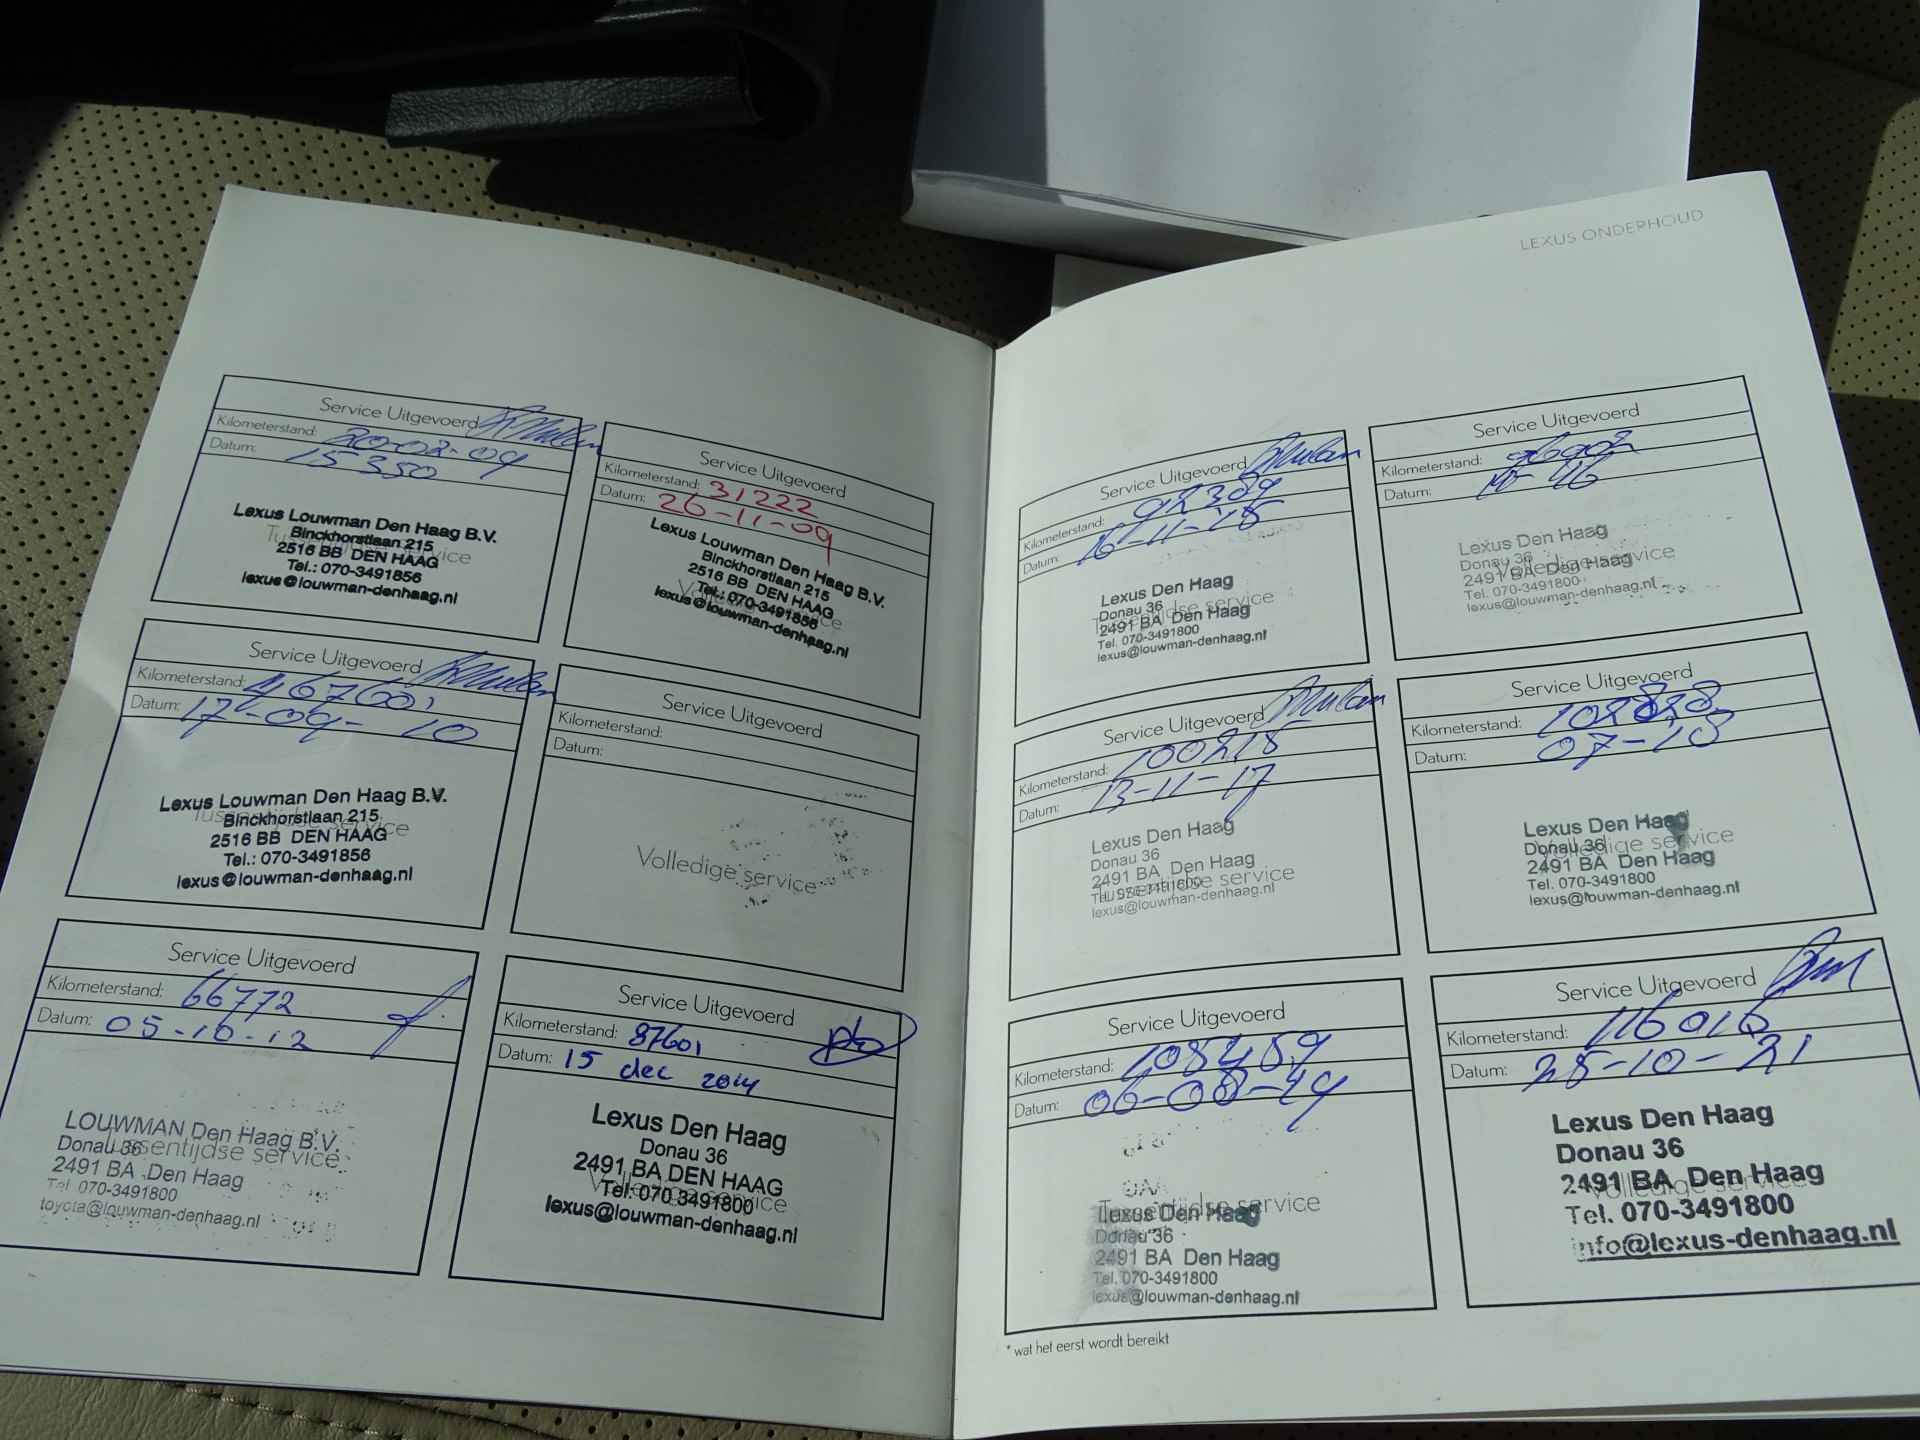 LEXUS ONDERHOUD
Service Uitgevoerd
Kilometerstand: 20-02-09
Datum: 15350
Lexus Louwman Den Haag B.V.
Binckhorstlaan 215
Tussentijdse service
2516 BB DEN HAAG
Tel.: 070-3491856
lexus@louwman-denhaag.nl
Service Uitgevoerd
Kilometerstand: 31222
Datum: 26-11-09
Lexus Louwman Den Haag B.V.
Binckhorstlaan 215
2516 BB DEN HAAG
Volledige service
Tel.: 070-3491856
lexus@louwman-denhaag.nl
Service Uitgevoerd
Kilometerstand: 46760
Datum: 17-09-10
Lexus Louwman Den Haag B.V.
Binckhorstlaan 215
Tussentijdse service
2516 BB DEN HAAG
Tel.: 070-3491856
lexus@louwman-denhaag.nl
Service Uitgevoerd
Kilometerstand:
Datum:
Volledige service
Service Uitgevoerd
Kilometerstand: 66772
Datum: 05-10-12
LOUWMAN Den Haag B.V.
Donau 36
Tussentijdse service
2491 BA Den Haag
Tel. 070-3491800
toyota@louwman-denhaag.nl
Service Uitgevoerd
Kilometerstand: 87601
Datum: 15 dec 2014
Lexus Den Haag
Donau 36
2491 BA DEN HAAG
Volledige service
Tel. 070 3491800
lexus@louwman-denhaag.nl
Service Uitgevoerd
Kilometerstand: 92389
Datum: 16-11-15
Lexus Den Haag
Donau 36
Tussentijdse service
2491 BA Den Haag
Tel. 070-3491800
lexus@louwman-denhaag.nl
Service Uitgevoerd
Kilometerstand:
Datum:
Lexus Den Haag
Donau 36
Volledige service
2491 BA Den Haag
Tel. 070-3491800
lexus@louwman-denhaag.nl
Service Uitgevoerd
Kilometerstand: 100218
Datum: 13-11-17
Lexus Den Haag
Donau 36
2491 BA Den Haag
Tussentijdse service
Tel. 070-3491800
lexus@louwman-denhaag.nl
Service Uitgevoerd
Kilometerstand: 102828
Datum: 07-18
Lexus Den Haag
Donau 36
Volledige service
2491 BA Den Haag
Tel. 070-3491800
lexus@louwman-denhaag.nl
Service Uitgevoerd
Kilometerstand: 108489
Datum: 06-08-19
Tussentijdse service
Lexus Den Haag
Donau 36
2491 BA Den Haag
Tel. 070-3491800
lexus@louwman-denhaag.nl
Service Uitgevoerd
Kilometerstand: 116016
Datum: 25-10-21
Lexus Den Haag
Donau 36
2491 BA Den Haag
Volledige service
Tel. 070-3491800
info@lexus-denhaag.nl
* wat het eerst wordt bereikt